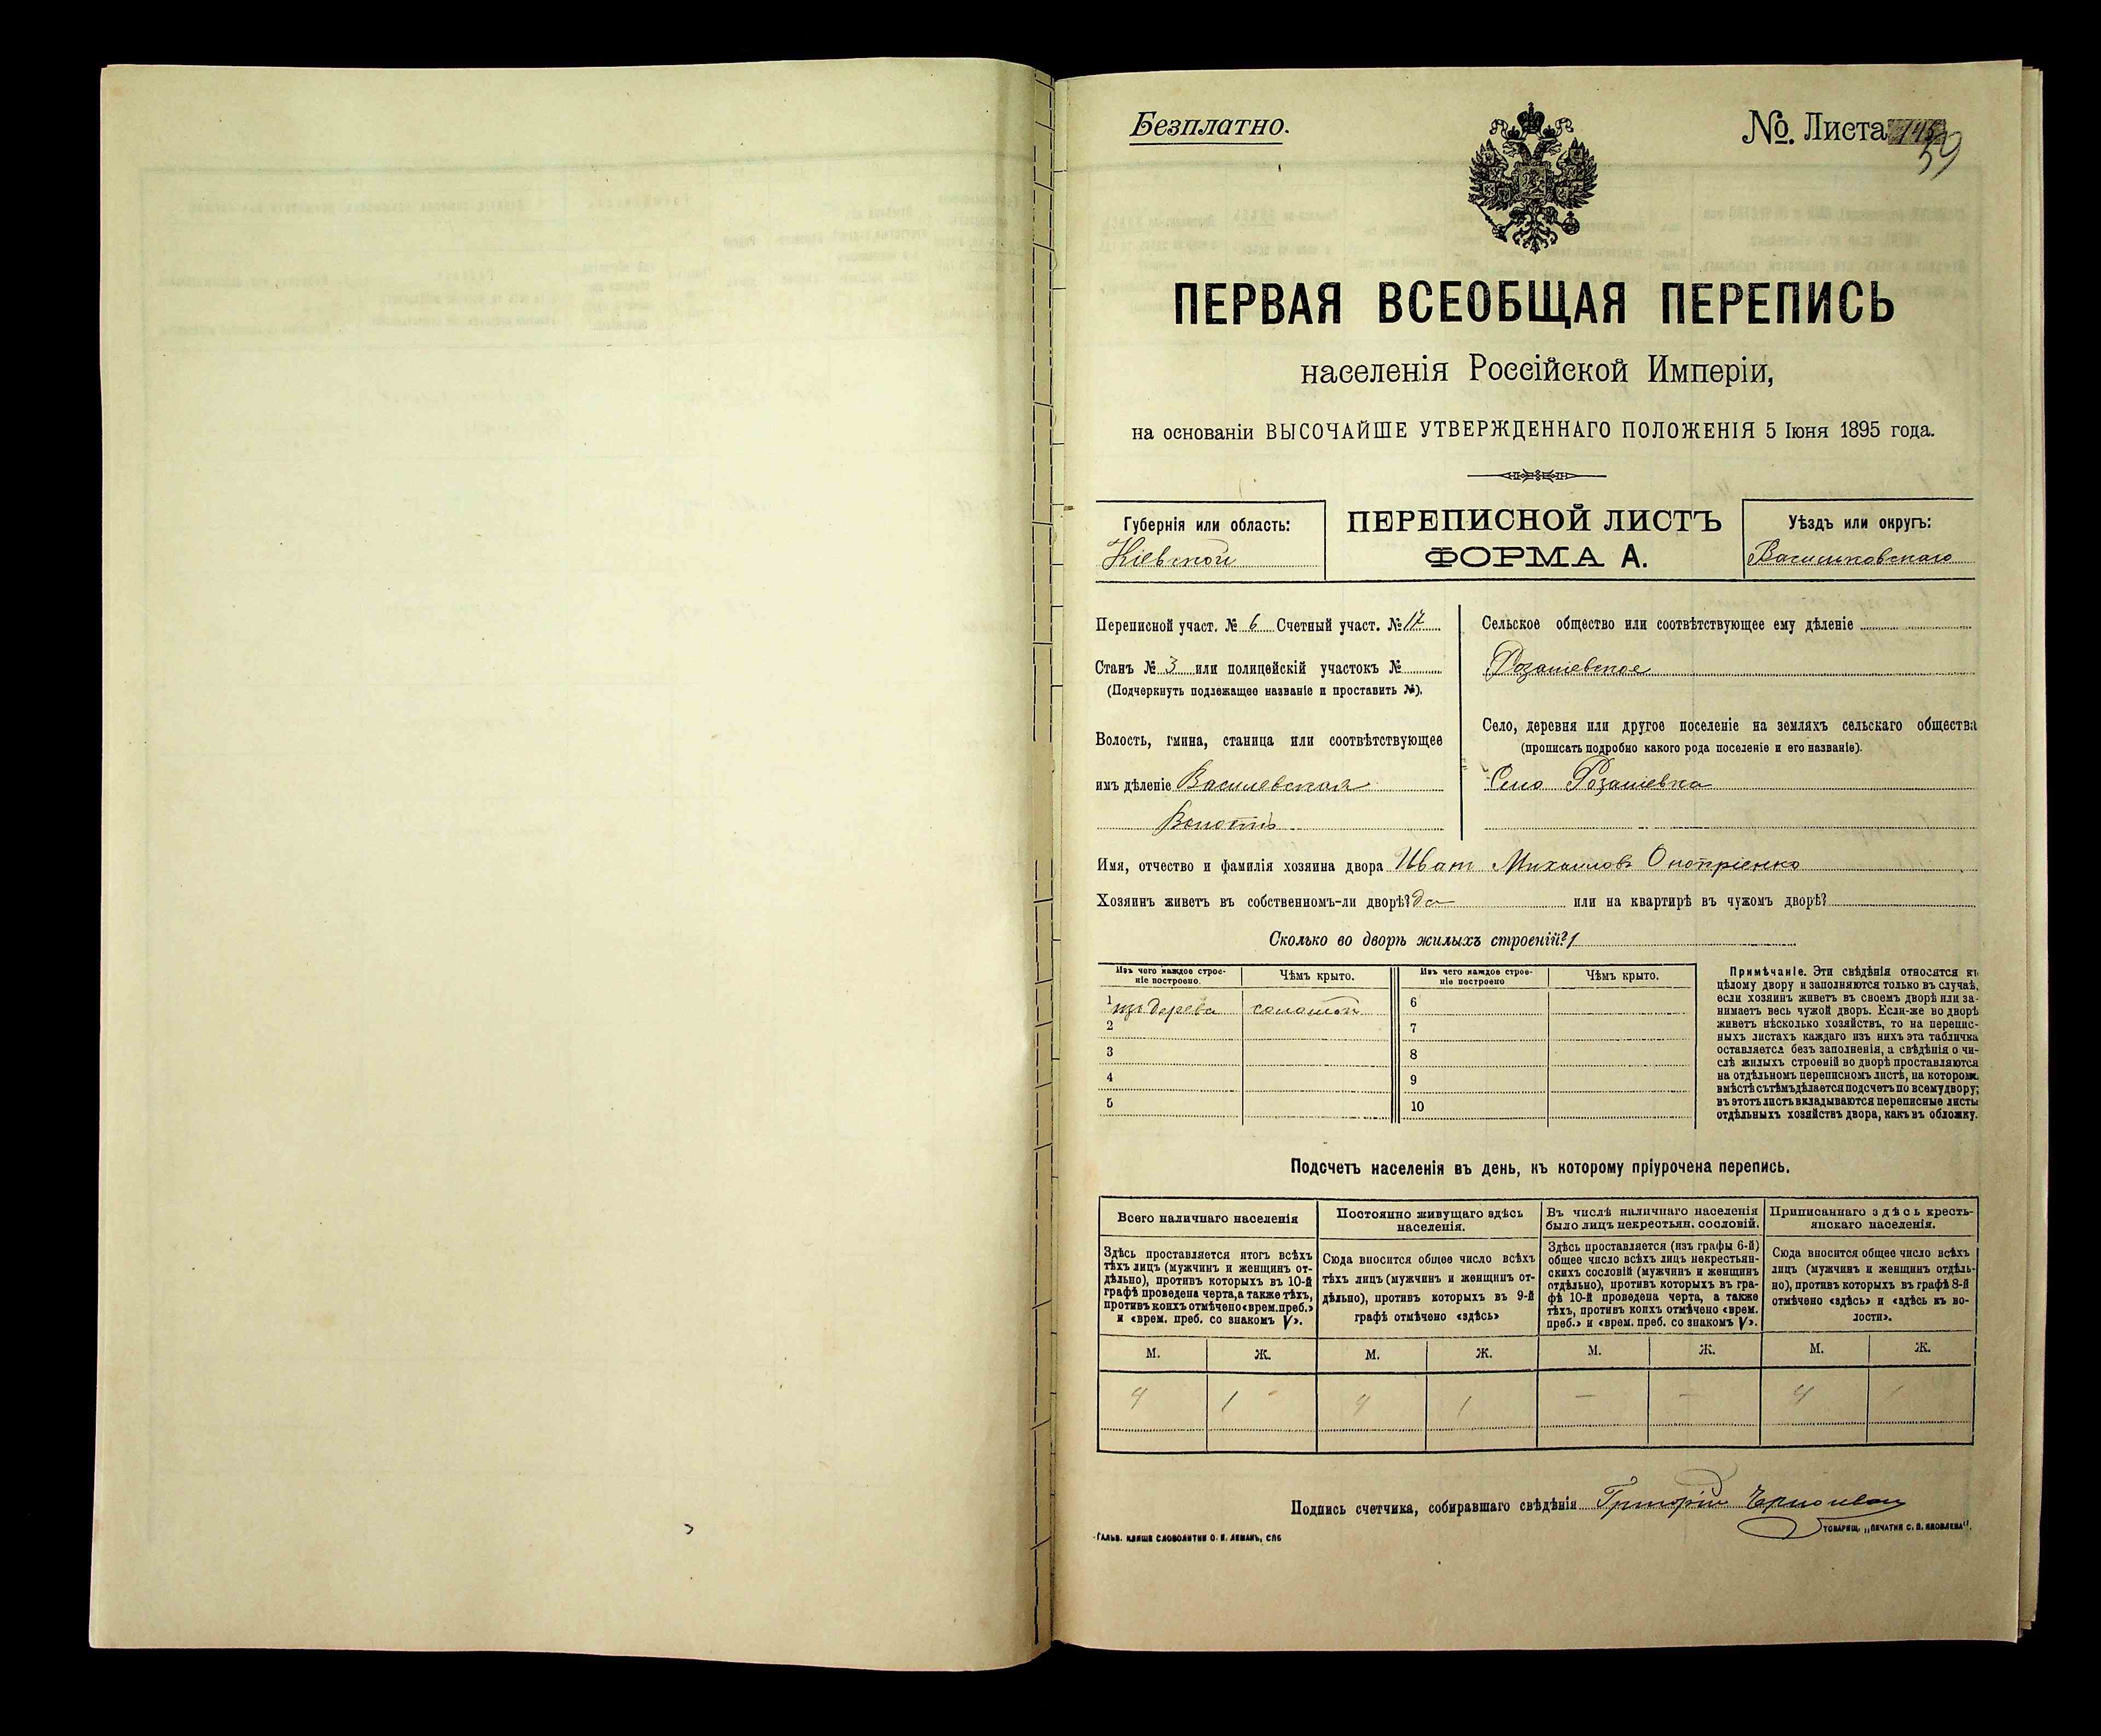 Безплатно.
№. Листа
59
ПЕРВАЯ ВСЕОБЩАЯ ПЕРЕПИСЬ
населенія Россійской Имперіи,
на основаніи ВЫСОЧАЙШЕ УТВЕРЖДЕННАГО ПОЛОЖЕНІЯ 5 Іюня 1895 года.
Губернія или область:
Кіевской
ПЕРЕПИСНОЙ ЛИСТЪ
ФОРМА А.
Уѣздъ или округъ:
Васильковскаго
Переписной участ. № 6 Счетный участ. № 17
Станъ № 3 или полицейскій участокъ №
(Подчеркнуть подлежащее названіе и проставить №).
Волость, гмина, станица или соотвѣтствующее
имъ дѣленіе Василевская
Волость
Сельское общество или соотвѣтствующее ему дѣленіе
Розаліевское
Село, деревня или другое поселеніе на земляхъ сельскаго общества
(прописать подробно какого рода поселеніе и его названіе).
Село Розаліевка
Имя, отчество и фамилія хозяина двора Иван Михаиловъ Онопріенко
Хозяинъ живетъ въ собственномъ-ли дворѣ? да или на квартирѣ въ чужомъ дворѣ?
Сколько во дворѣ жилыхъ строеній? 1
Изъ чего каждое строе-
ніе построено.
Чѣмъ крыто.
Изъ чего каждое строе-
ніе построено
Чѣмъ крыто.
1 изъ дерева соломой 6
2 7
3 8
4 9
5 10
Примѣчаніе. Эти свѣдѣнія относятся къ
цѣлому двору и заполняются только въ случаѣ,
если хозяинъ живетъ въ своемъ дворѣ или за-
нимаетъ весь чужой дворъ. Если-же во дворѣ
живетъ нѣсколько хозяйствъ, то на перепис-
ныхъ листахъ каждаго изъ нихъ эта табличка
оставляется безъ заполненія, а свѣдѣнія о чи-
слѣ жилыхъ строеній во дворѣ проставляются
на отдѣльномъ переписномъ листѣ, на которомъ
вмѣстѣ съ тѣмъ дѣлается подсчетъ по всему двору;
въ этотъ листъ вкладываются переписные листы
отдѣльныхъ хозяйствъ двора, какъ въ обложку.
Подсчетъ населенія въ день, къ которому пріурочена перепись.
Всего наличнаго населенія
Здѣсь проставляется итогъ всѣхъ
тѣхъ лицъ (мужчинъ и женщинъ от-
дѣльно), противъ которыхъ въ 10-й
графѣ проведена черта, а также тѣхъ,
противъ коихъ отмѣчено «врем. преб.»
и «врем. преб. со знакомъ V».
Постоянно живущаго здѣсь
населенія.
Сюда вносится общее число всѣхъ
тѣхъ лицъ (мужчинъ и женщинъ от-
дѣльно), противъ которыхъ въ 9-й
графѣ отмѣчено «здѣсь»
Въ числѣ наличнаго населенія
было лицъ некрестьян. сословій.
Здѣсь проставляется (изъ графы 6-й)
общее число всѣхъ лицъ некрестьян-
скихъ сословій (мужчинъ и женщинъ
отдѣльно), противъ которыхъ въ гра-
фѣ 10-й проведена черта, а также
тѣхъ, противъ коихъ отмѣчено «врем.
преб.» и «врем. преб. со знакомъ V».
Приписаннаго здѣсь кресть-
янскаго населенія.
Сюда вносится общее число всѣхъ
лицъ (мужчинъ и женщинъ отдѣль-
но), противъ которыхъ въ графѣ 8-й
отмѣчено «здѣсь» и «здѣсь къ во-
лости».
М. Ж. М. Ж. М. Ж. М. Ж.
4 1 4 1 — — 4 1
Подпись счетчика, собиравшаго свѣдѣнія Григорій
Гальв. клише словолитни О. И. Леманъ, СПБ
ТОВАРИЩ. „ПЕЧАТНЯ С. П. ЯКОВЛЕВА“.